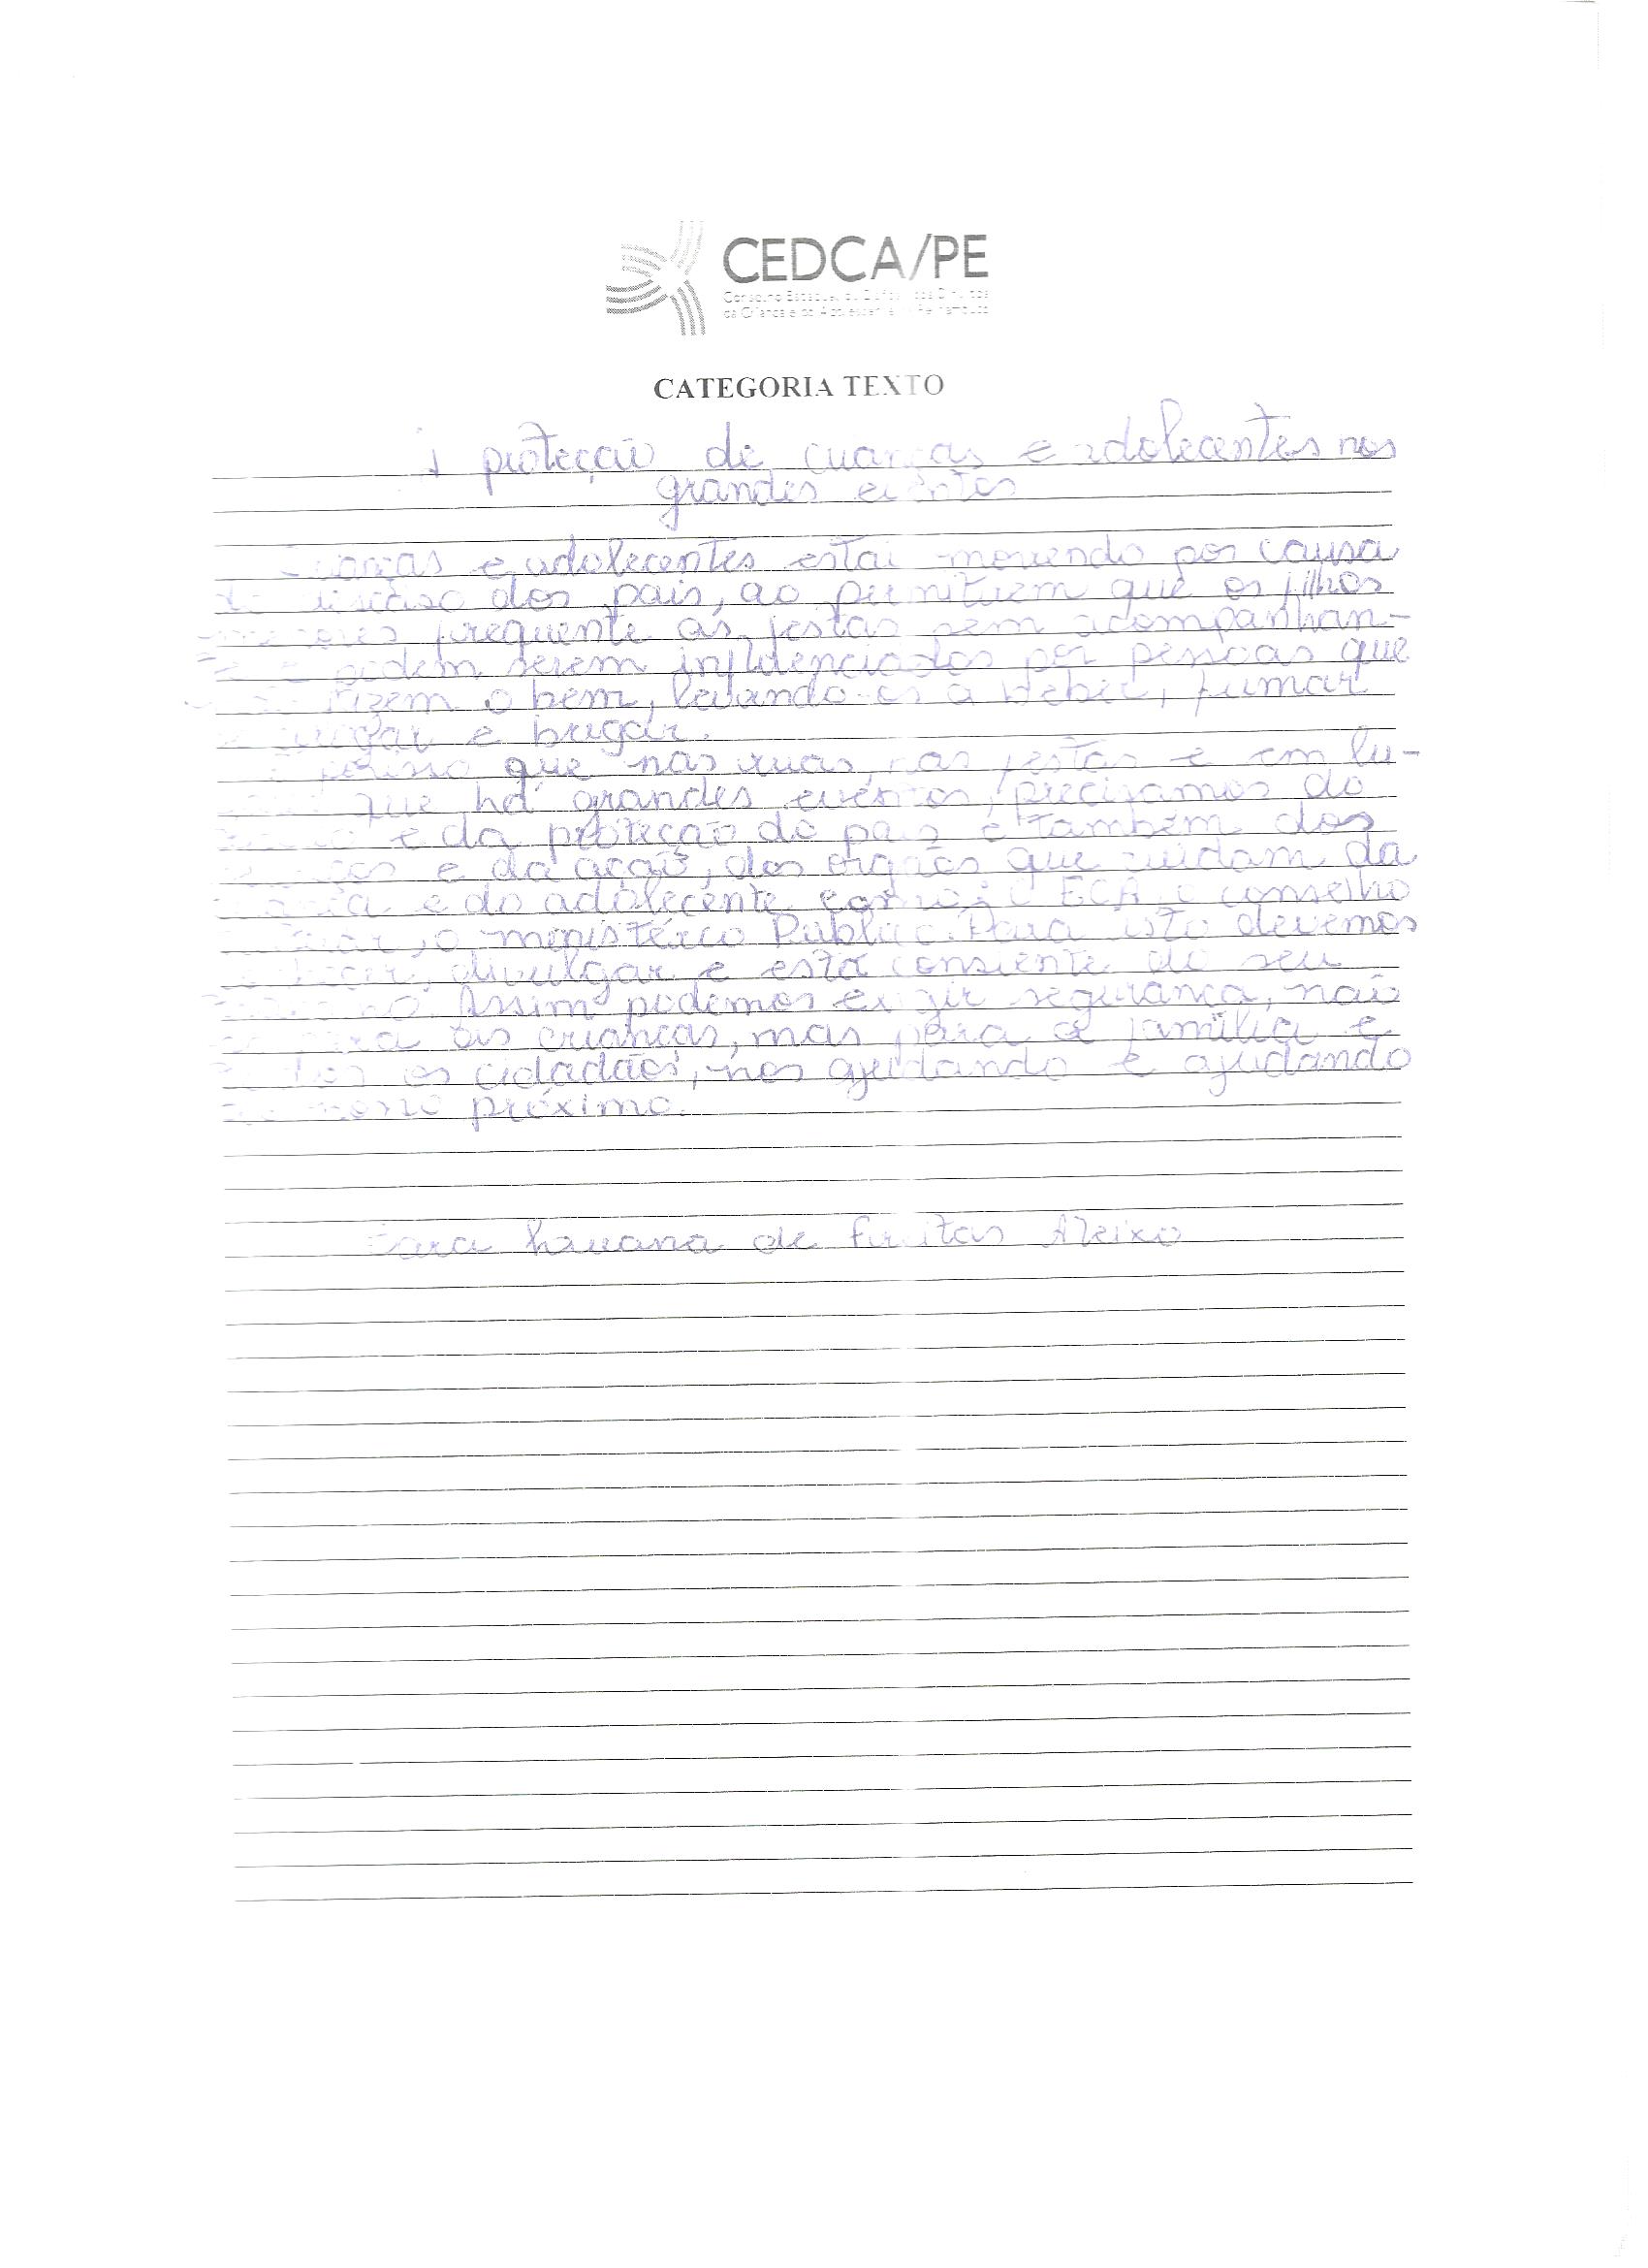 CEDCA/PE
Conselho Estadual de Defesa dos Direitos
da Criança e do Adolescente Pernambuco
CATEGORIA TEXTO
A proteção de crianças e adolecentes nos
grandes eventos
Crianças e adolecentes estai morrendo por causa
do dos pais, ao permitirem que os filhos
menores frequente as festas sem acompanhan-
te e podem serem influenciados por pessoas que
fizem o bem, levando-os a beber, fumar
e brigar.
É porisso que nas ruas, nas festas e em lu-
que há grandes eventos, precisamos do
e da proteção do pais e também dos
e da ação, dos orgãos que cuidam da
criança e do adolecente como: o ECA o conselho
tutelar, o ministério Público. Para isto devemos
divulgar e está consiente do seu
Assim podemos exigir segurança, não
só para as crianças, mas para a família e
todos os cidadãos, nos ajudando e ajudando
ao nosso próximo.
de Freitas Aleixo